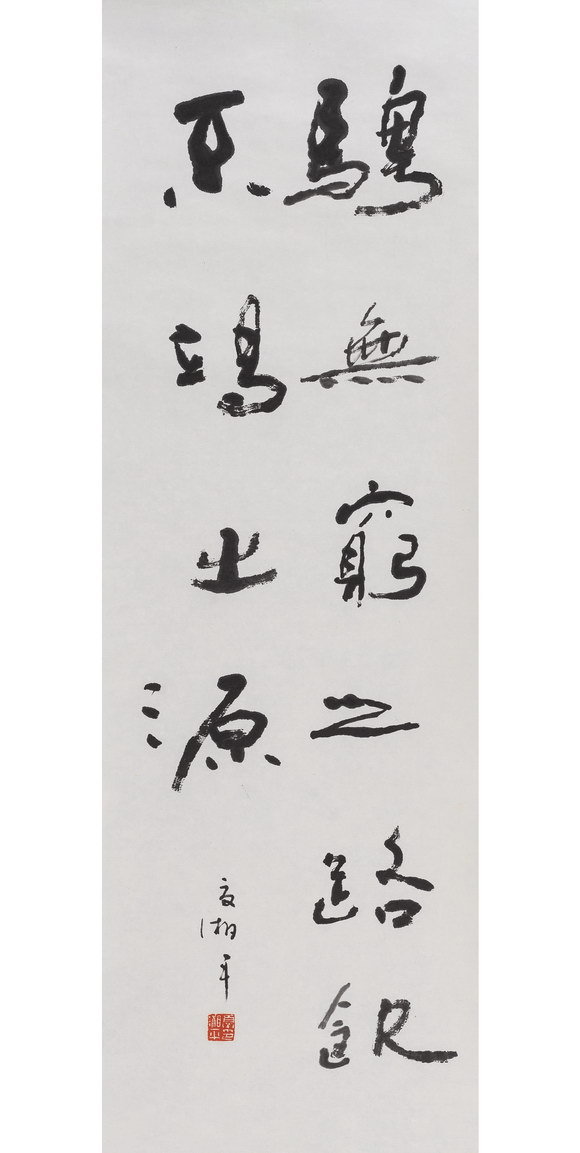 騁無窮之路飲
不竭之源
夏湘平